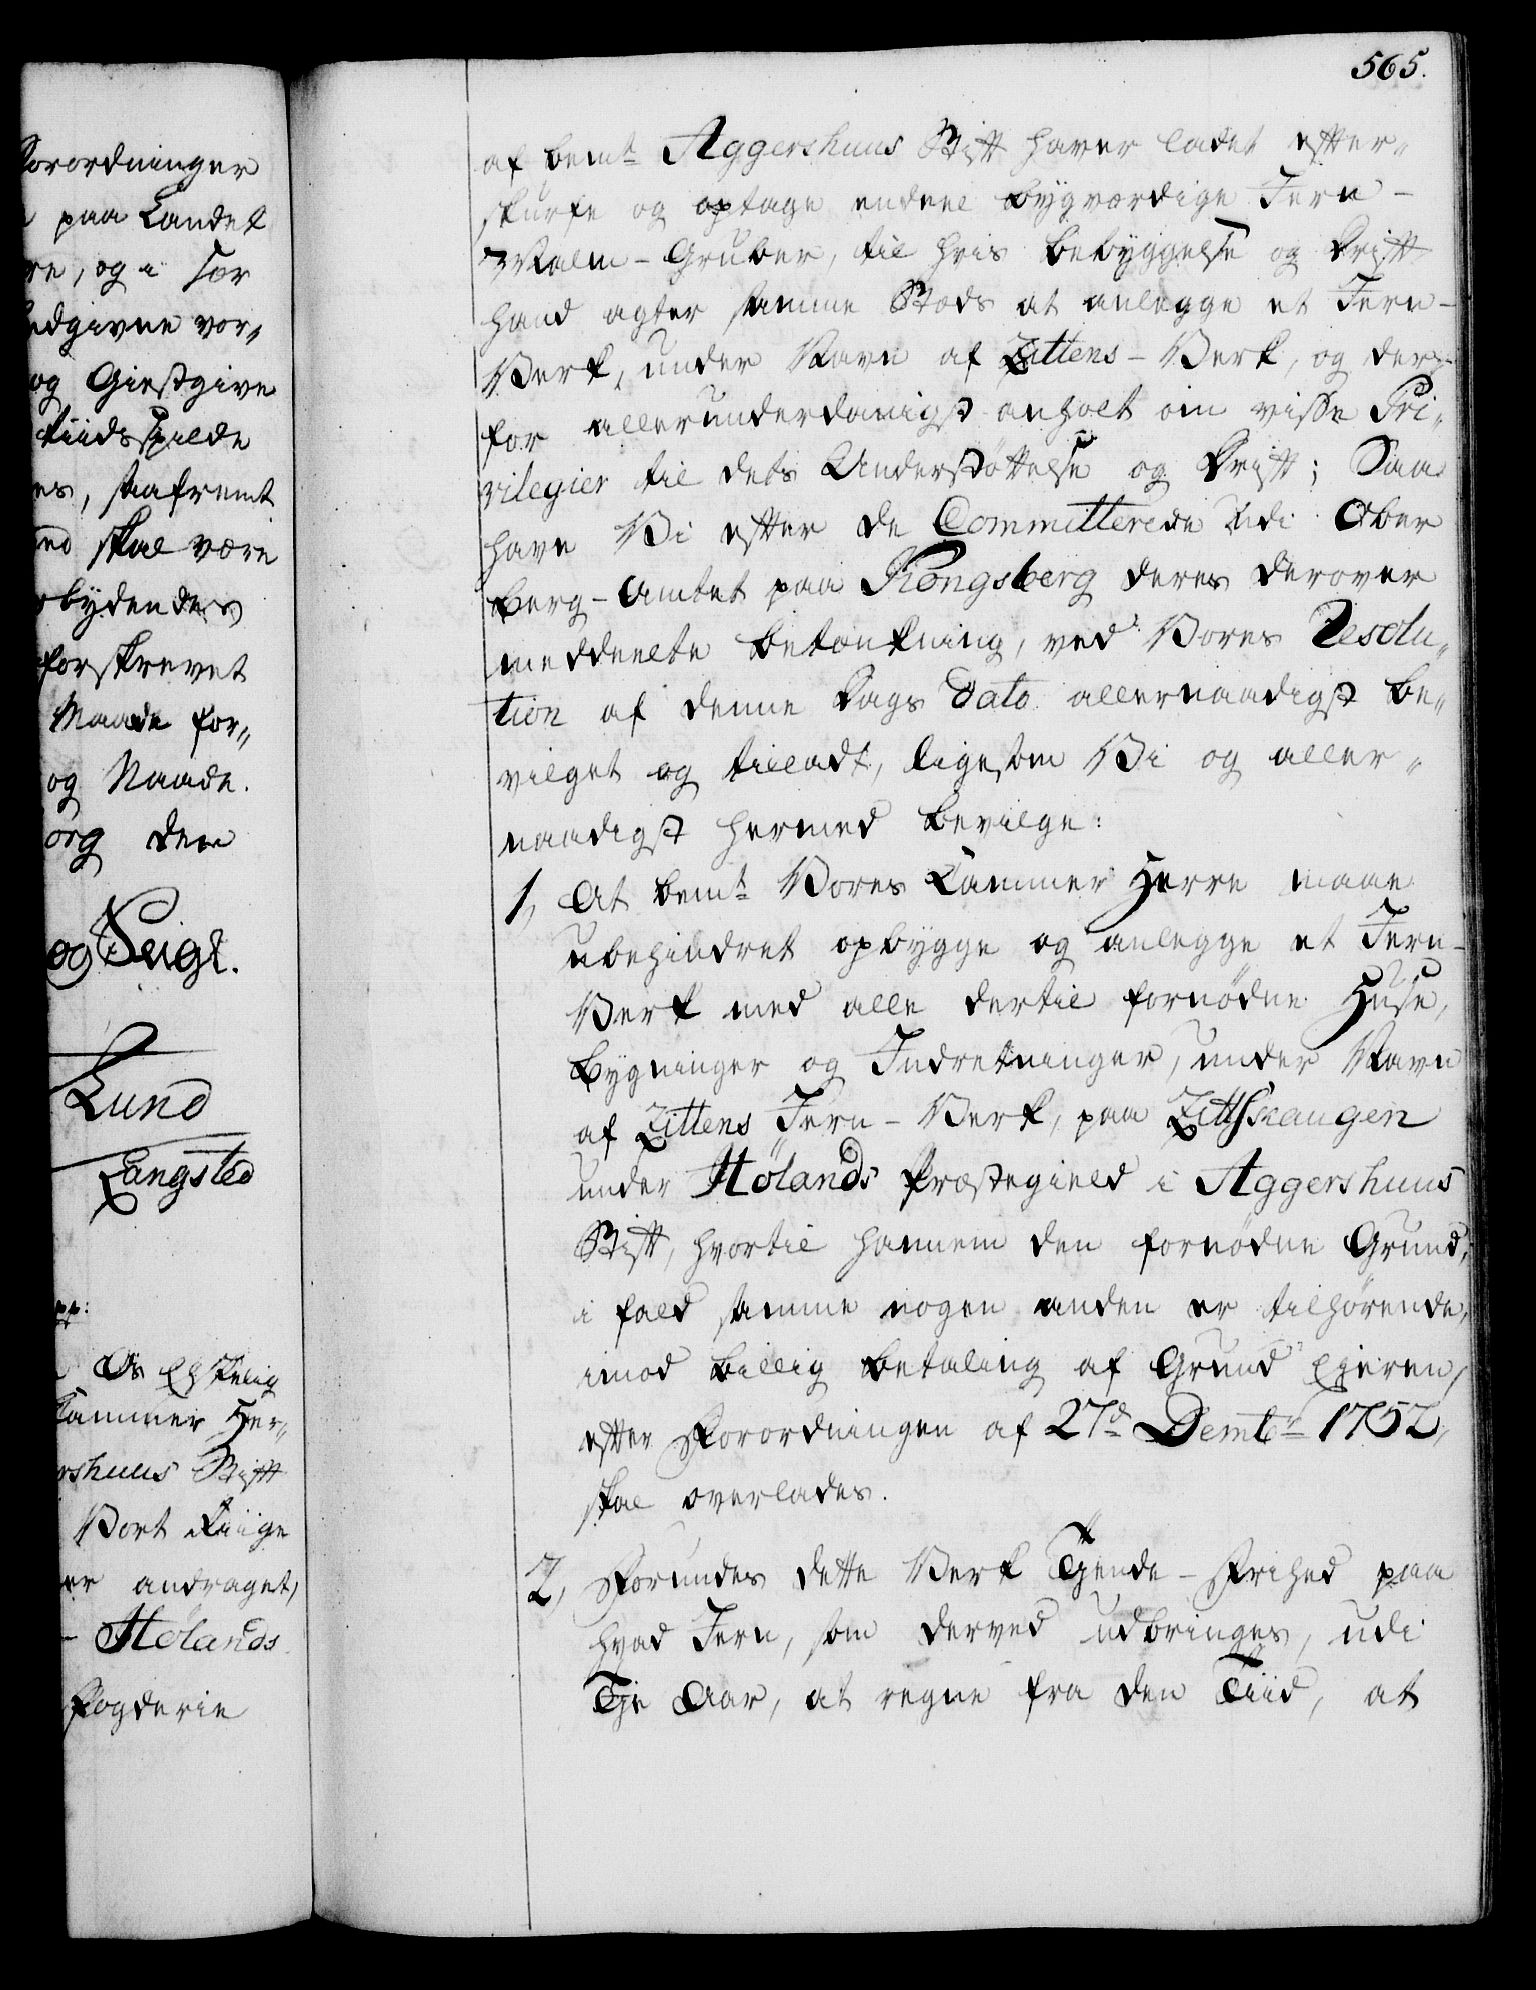 orordninger
paa Landet
re, og i sær
edgivne vor„
og Giestgive
tiids spilde
es, saafremt
ed skal være
bydendes
forskrevet
Maade for„
og Naade.
org den
og Seigl.
Lund
Langsted
Os
Kammer Her„
rshuus Stift
Vort Riige
er andraget,
- Hølands
Fogderie
565.
af bemt Aggershuus Stift haver ladet efter„
skurfe og optage endeel bygværdige Jern-
Malm-Gruber, til hvis Bebyggelse og Drift
hand agter samme Stæds at anlegge et Jern-
Verk, under Navn af Zittens-Verk, og der„
for allerunderdanigst anholt om visse Pri„
vilegier til dets Understøttelse og Drift; Saa
have Vi efter de Committerede udi Ober
Berg-Amtet paa Kongsberg deres derover
meddeelte Betænkning, ved Vores Resolu„
tion af denne Dags Dato allernaadigst be„
vilget og tilladt, ligesom Vi og aller„
naadigst hermed bevilge:
1, At bemt Vores Kammer Herre maae
ubehindret opbygge og anlegge et Jern-
Verk med alle dertil fornødne Huse,
Bygninger og Indretninger, under Navn
af Zittens Jern-Verk, paa Zittskaugen
under Hølands Præstegield i Aggershuus
Stift, hvortil hannem den fornødne Grund,
i fald samme nogen anden er tilhørende,
imod billig Betaling af Grund Ejeren,
efter Forordningen af 27d Decembr 1752,
skal overlades.
2, Forundes dette Verk Tjende-Frihed paa
hvad Jern, som derved udbringes, udi
Tje Aar, at regne fra den Tiid, at